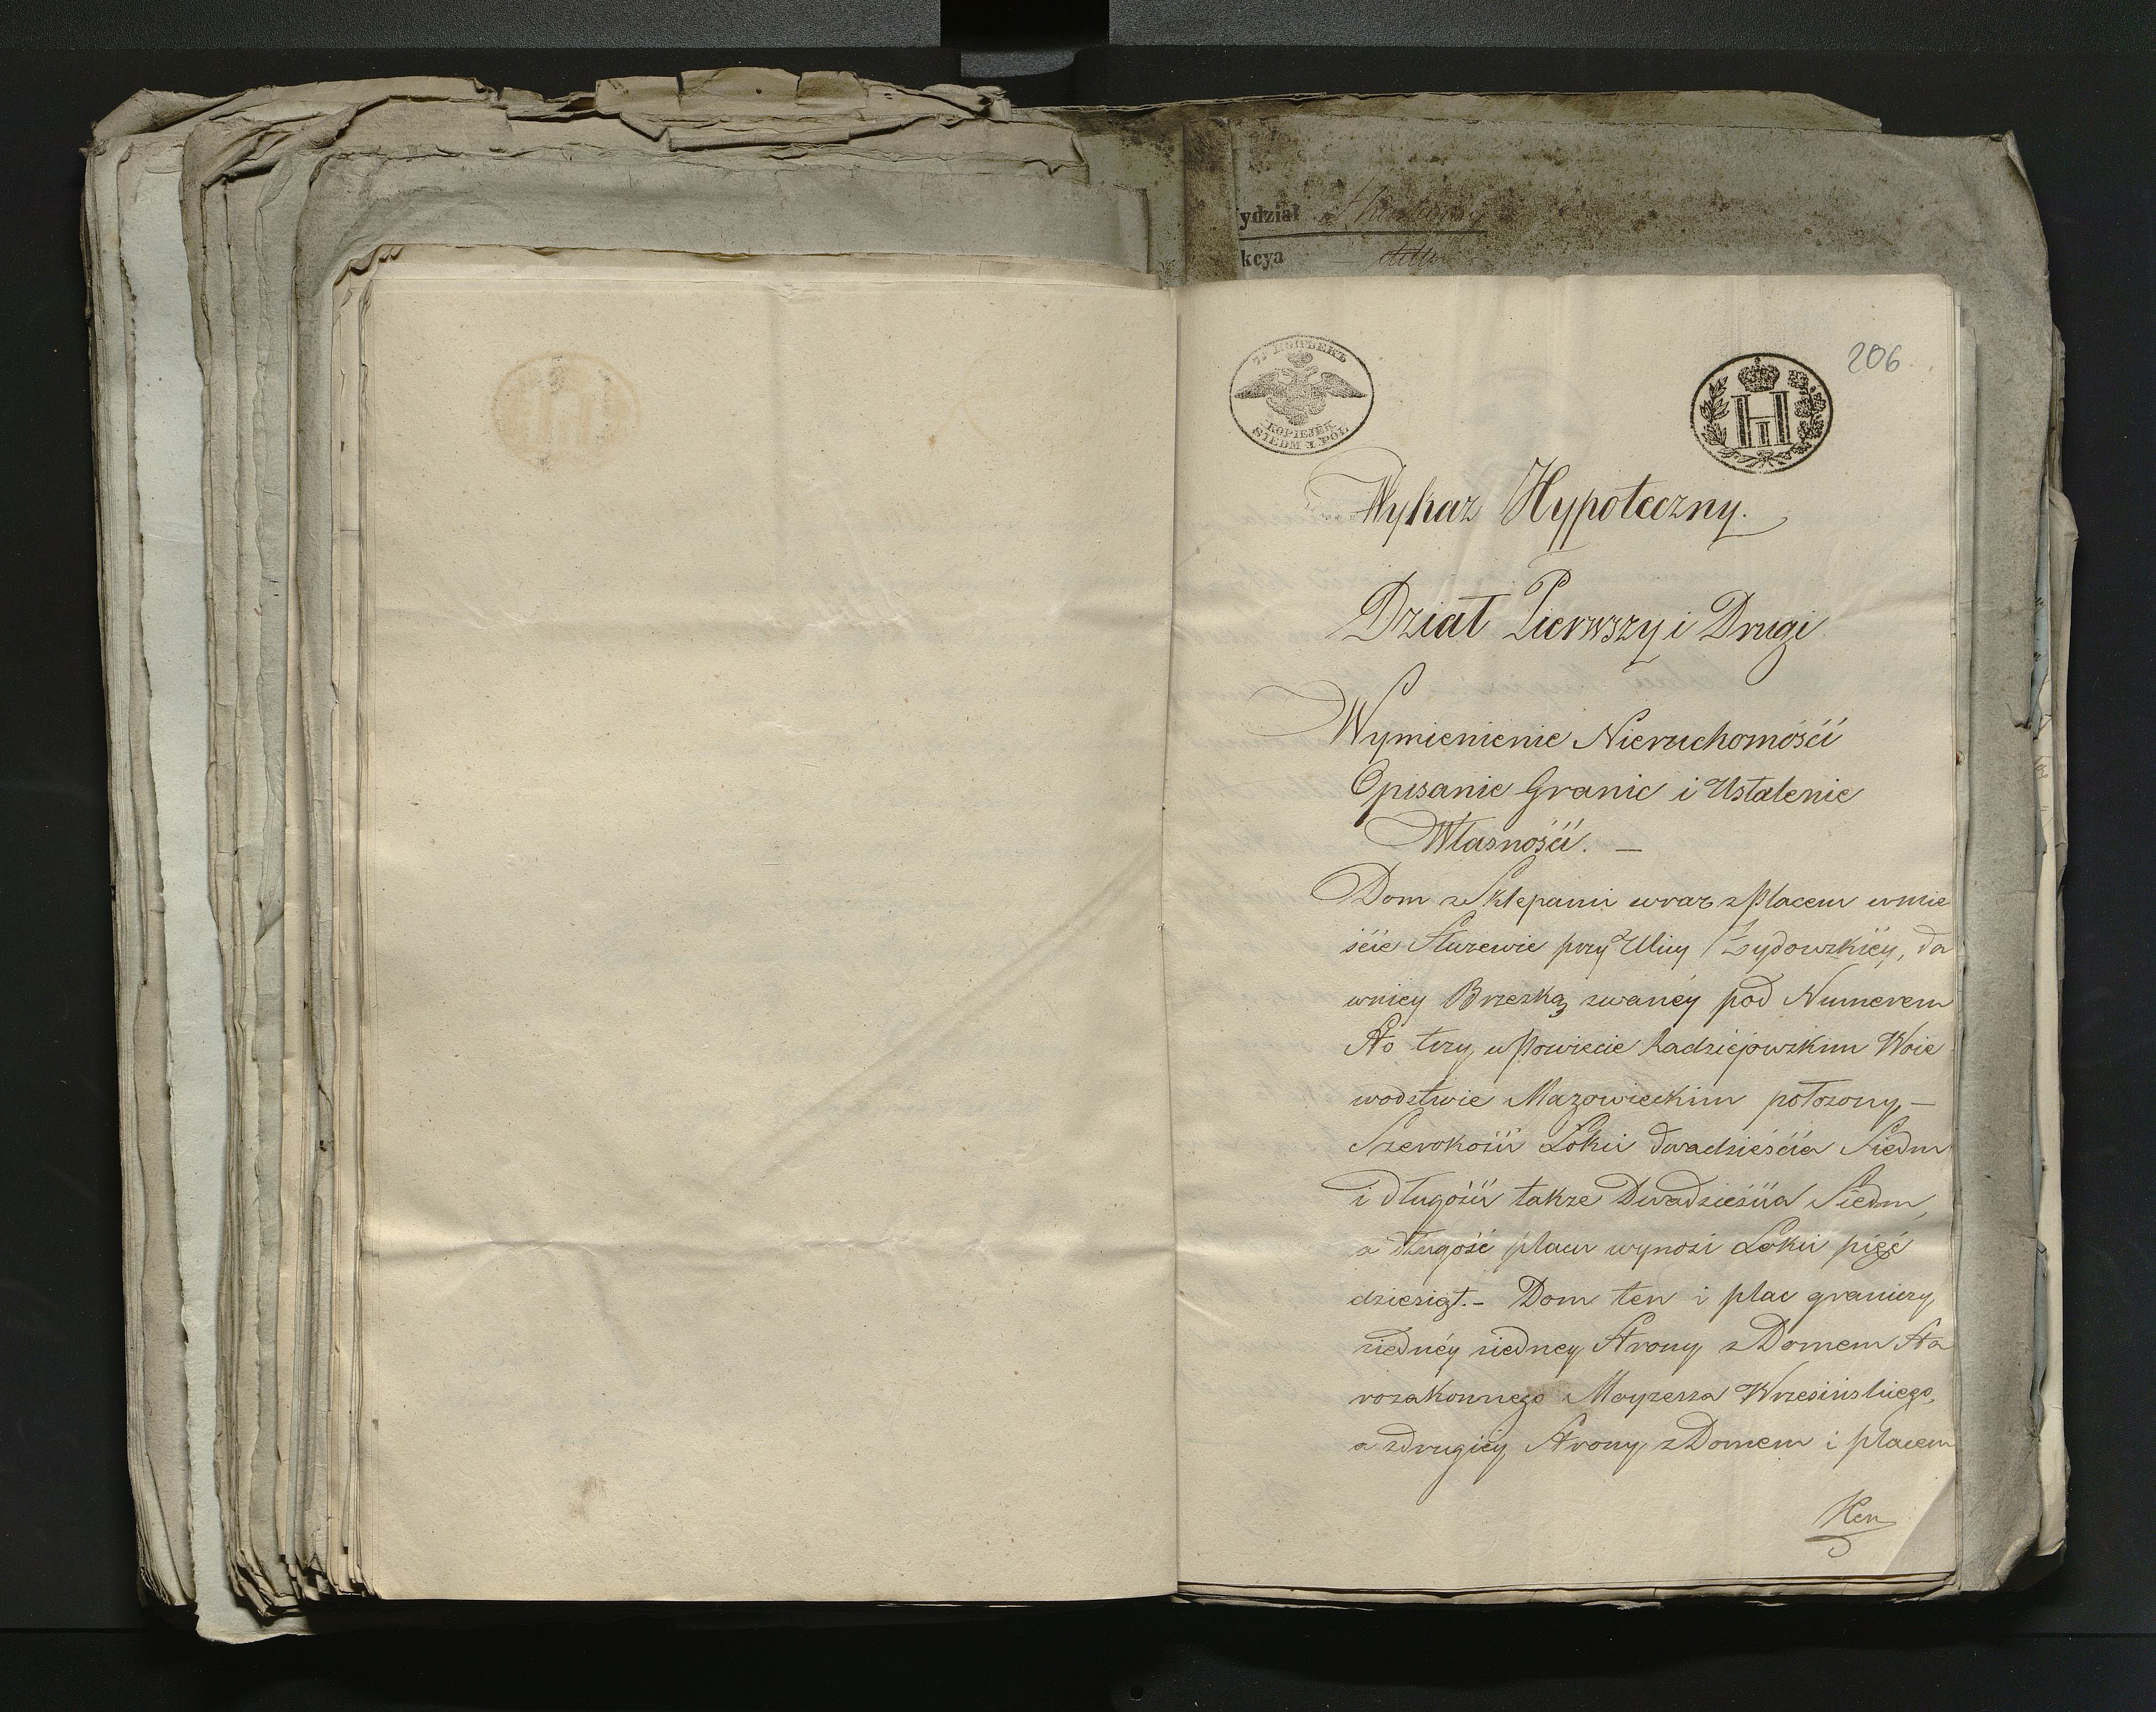 ydział
kcya
206
7½ КОПѢЕКЪ
KOPIEJEK
SIEDM I PÓŁ
H
I
Wykaz Hypoteczny.
Dział Pierwszy i Drugi
Wymienienie Nieruchomości
Opisanie Granic i Ustalenie
Własności. —
Dom z Sklepami wraz z placem w mie
ście Służewie przy Ulicy Żydowskiéy, da
wniey Brzeską zwanéy pod Numerem
Sto trzy, w Powiecie Radziejowskim Woie
wodztwie Mazowieckim położony, —
Szerokości Łokci dwadzieścia Siedm
i długości także Dwadzieścia Siedm,
a długość placu wynosi Łokci pięć
dziesiąt. – Dom ten i plac graniczy,
ziednéy ziedney Strony z Domem Sta
rozakonnego Moyzesza Wrzesińskiego,
a zdrugiey Strony z Domem i placem